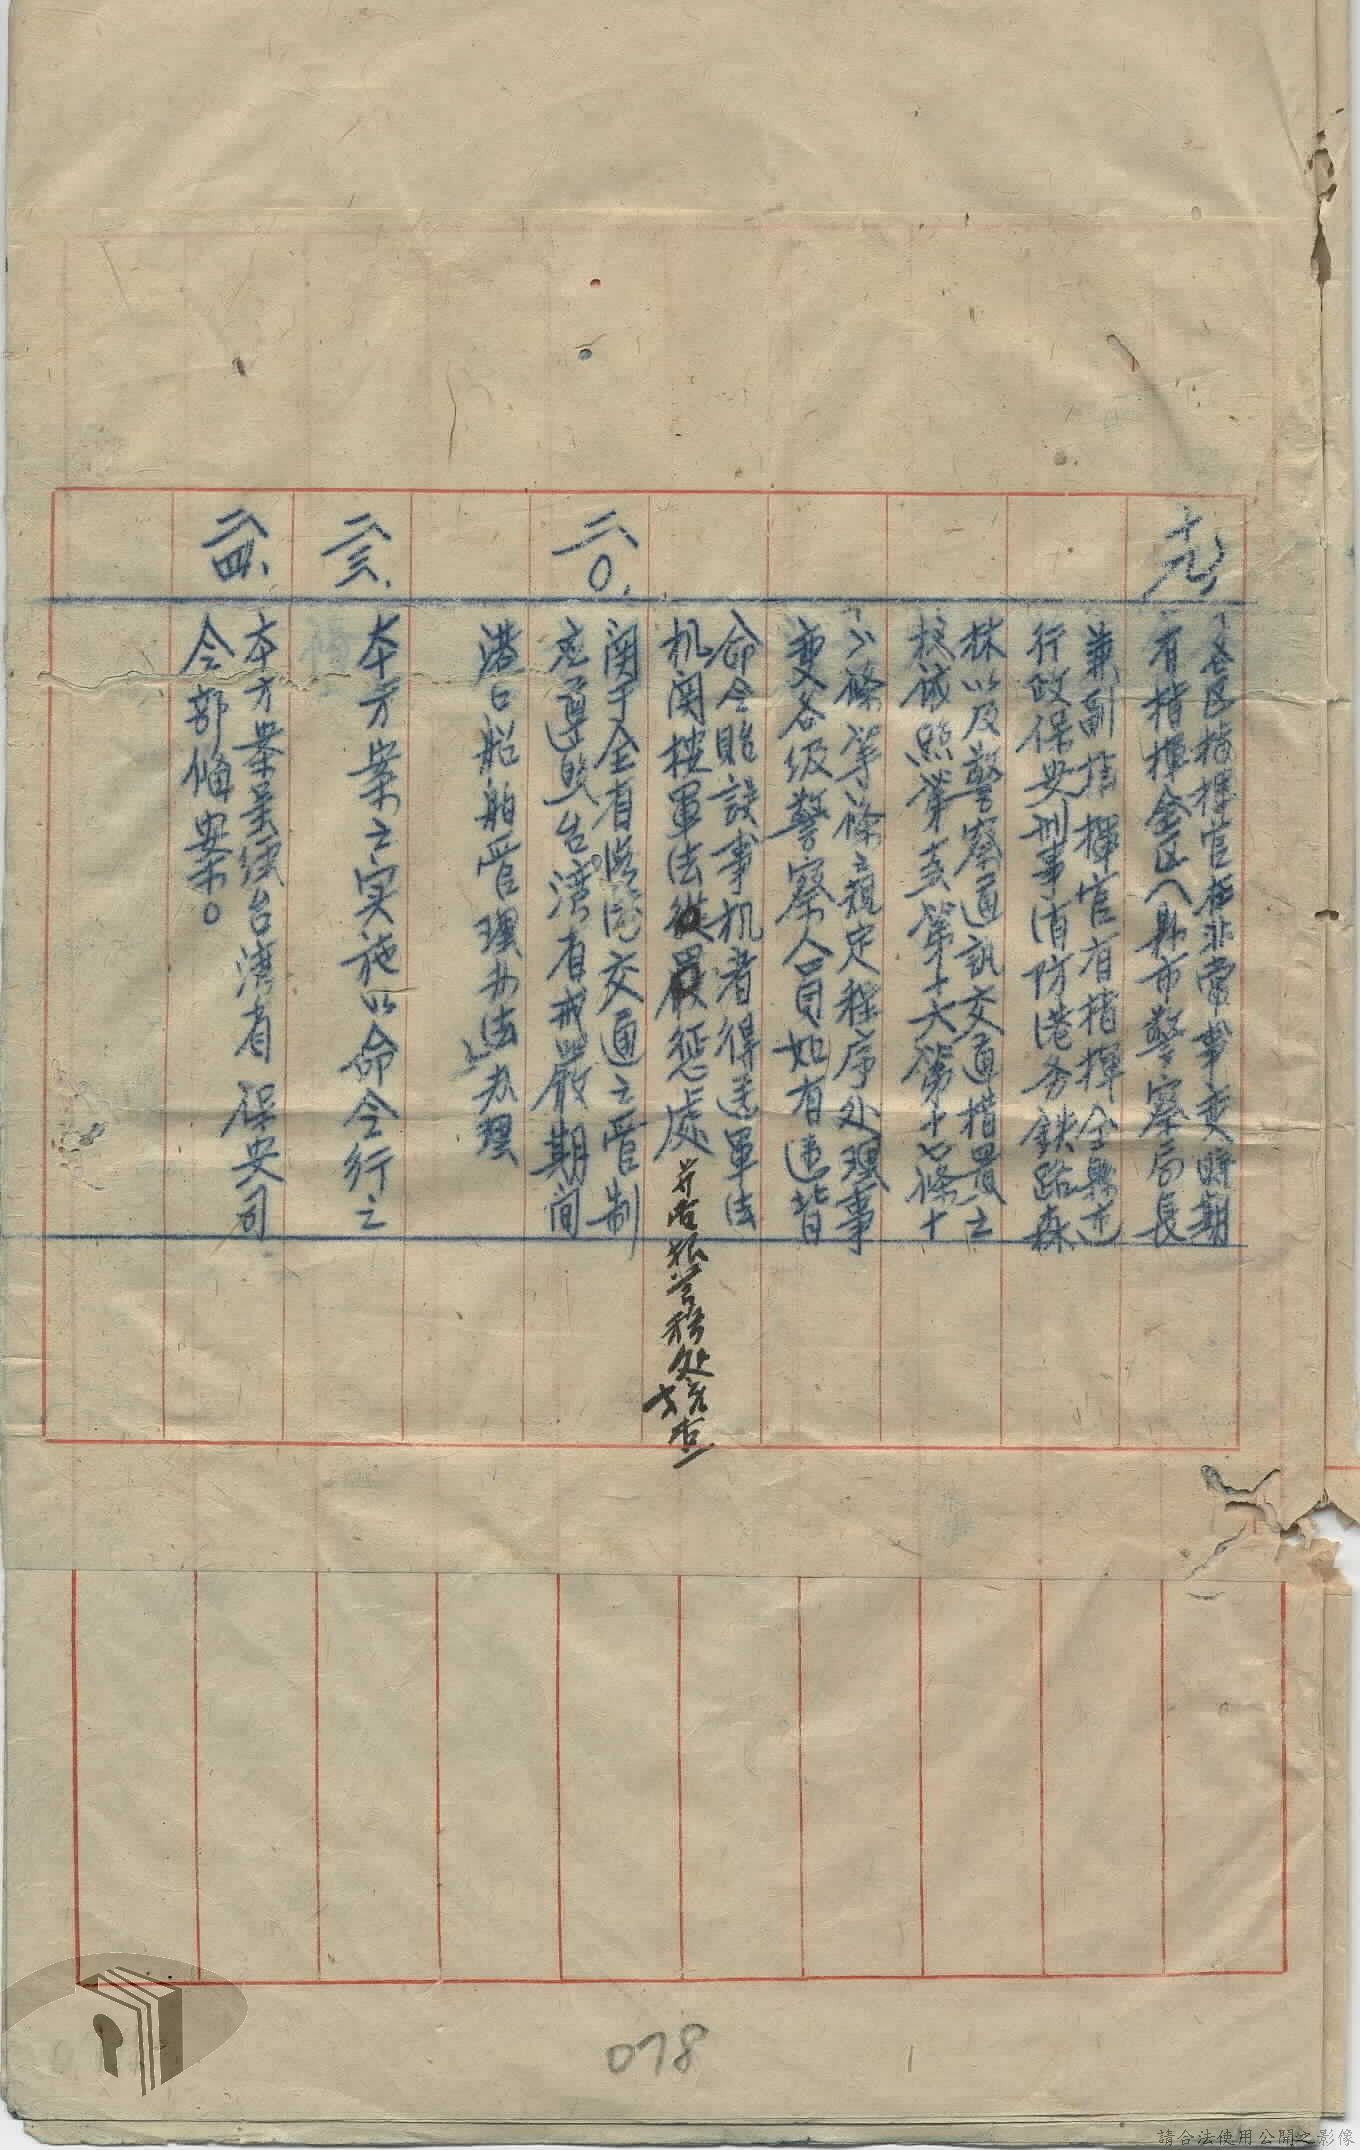 十九、
各區指揮官在非常事变時期
有指揮全區八縣市警察局長
兼副指揮官有指揮全縣市
行政保安刑事消防港务鉄路森
林以及警察通訊交通措置之
权依照第五第十六第十七條十
八條等條之規定程序处理事
变各级警察人員如有违背
命令貽誤事机者得送軍法
机関按軍法從嚴惩處
二〇、
関于全省港湾交通之管制
应遵照台湾省戒嚴期间
港口船舶管理办法办理
二三、
本方案之实施以命令行之
二四、
本方案呈缴台湾省保安司
令部備案。
078
請合法使用公開之影像